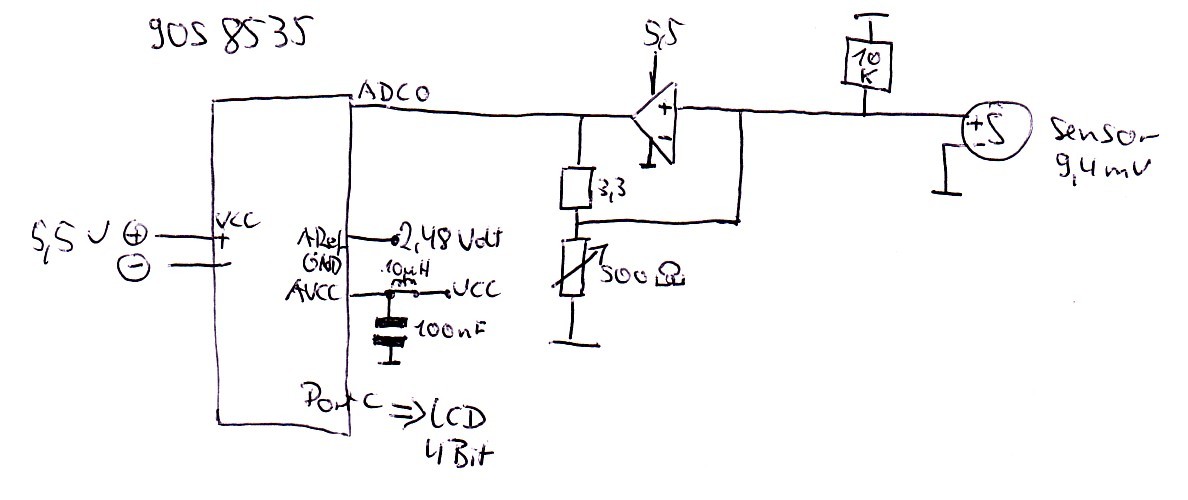 90S 8535
5,5
10
K
ADC0
+
-
+
-
S
Sensor
9,4mV
3,3
VCC
5,5 V +
+
-
ARef
2,48 Volt
GND
10µH
AVCC
VCC
500 Ω
100nF
Port C => LCD
4 Bit